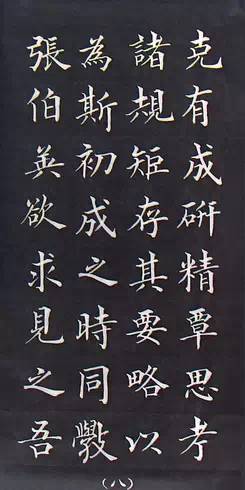 克有成研精覃思考
諸規矩存其要略以
為斯初成之時同學
張伯英欲求見之吾
(八)